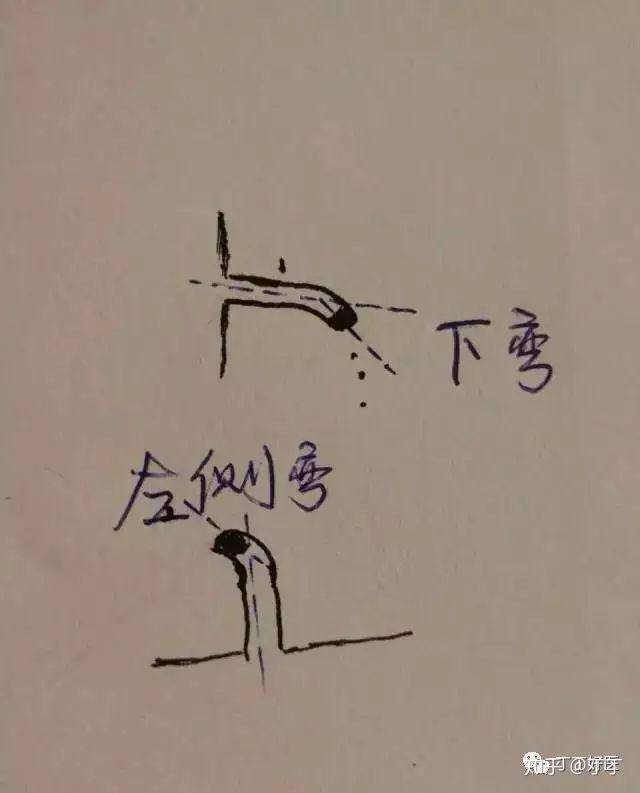 下弯
左侧弯
知乎 @好孕